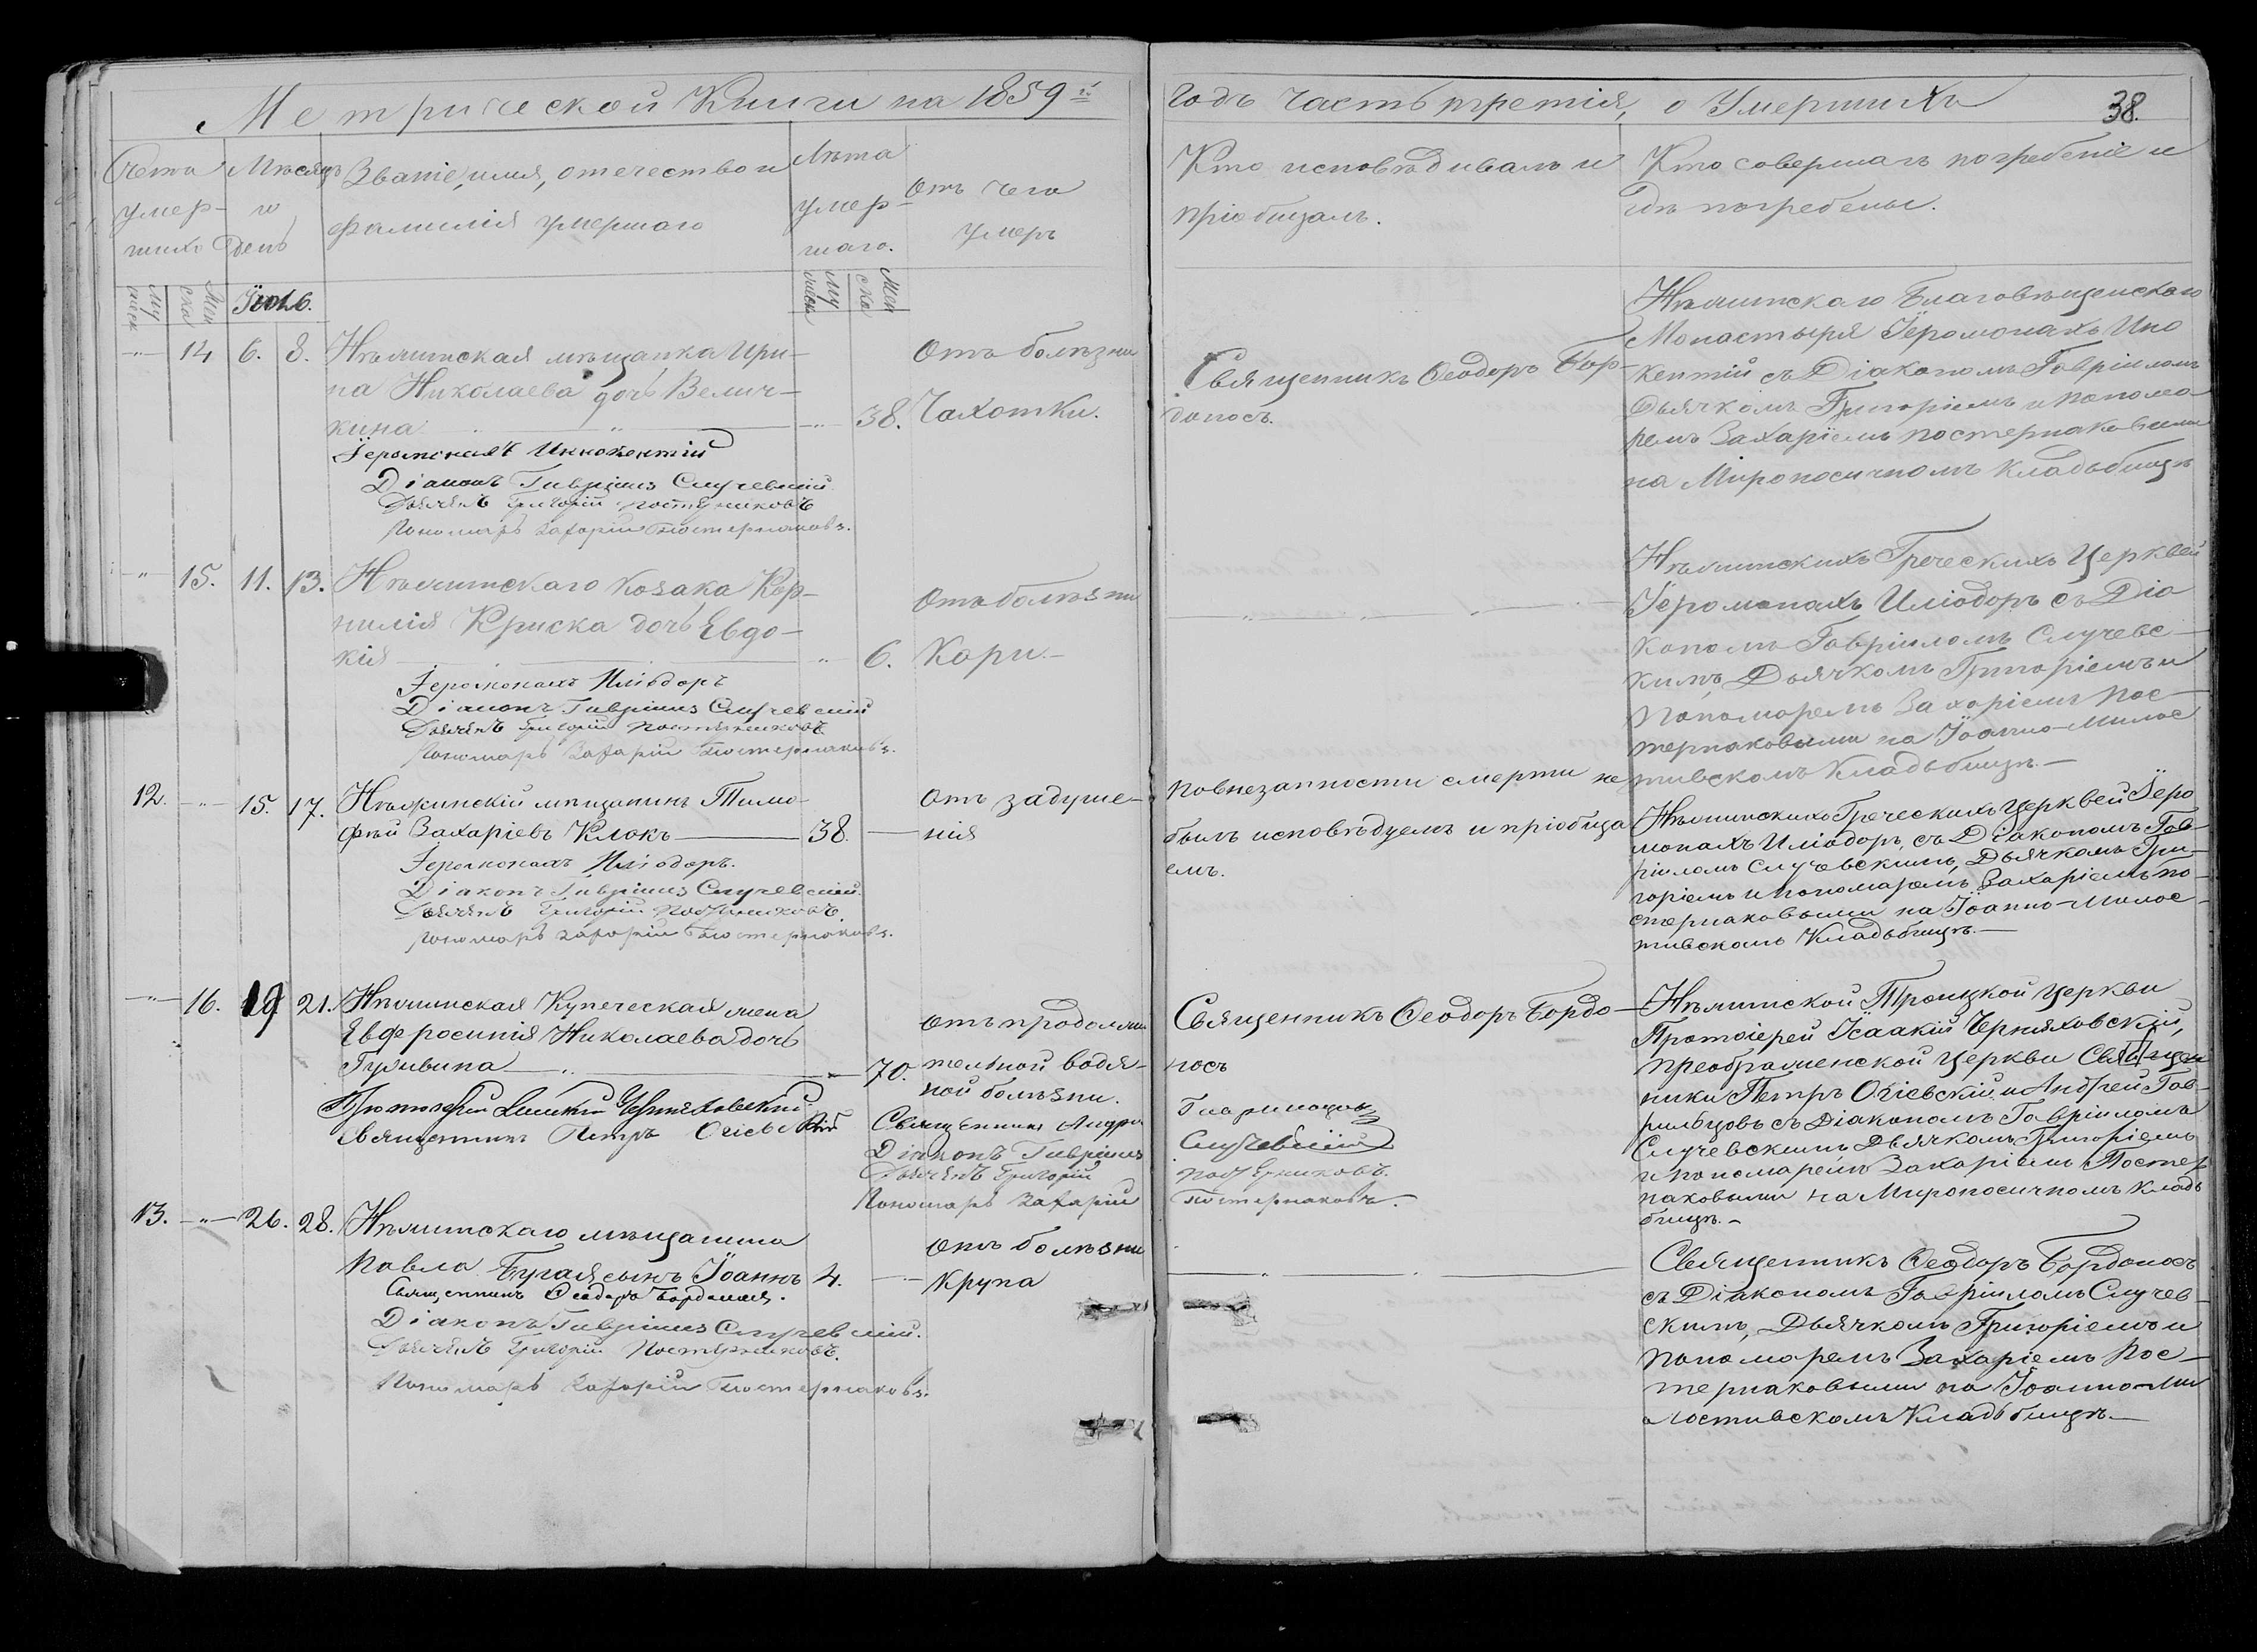 Метрической Книги на 1859й
Годъ часть третія, о Умершихъ
38.
Счетъ умер-шихъ
Мѣсяцъ и день
Званіе, имя, отечество и
фамилія умершаго
Лѣта умер-шаго.
Отъ чего
умеръ
Кто исповѣдивалъ и
пріобщалъ.
Кто совершалъ погребеніе и
гдѣ погребены.
Іюль.
14 6. 8. Нѣжинская мѣщанка Ири-
на Николаева дочь Велич-
кина 38.
Отъ болѣзни
Чахотки.
Іеромонахъ Иннокентій
Діаконъ Гавріилъ Случевскій
Дьячекъ Григорій Постернаковъ
Пономарь Захарій Постернаковъ.
Священникъ Ѳеодоръ Бор-
доносъ.
Нѣжинскаго Благовѣщенскаго
Монастыря Іеромонахъ Ино
кентій съ Діакономъ Гавріиломъ
Дьячкомъ Григоріемъ и понома-
ремъ Захаріемъ Постернаковыми
на Мироносичномъ кладьбищѣ
15. 11. 13. Нѣжинскаго козака Кор-
нилія Криска дочь Евдо-
кія 6.
Отъ болѣзни
Кори.-
Іеромонахъ Иліодоръ
Діаконъ Гавріилъ Случевскій
Дьячекъ Григорій Постернаковъ
Пономарь Захарій Постернаковъ.
Нѣжинскихъ Греческихъ Церквей
Іеромонахъ Иліодоръ съ Діа
кономъ Гавріиломъ Случевс-
кимъ, Дьячкомъ Григоріемъ и
Пономаремъ Захаріемъ Пос-
тернаковыми на Іоанно-Милос
тивскомъ Кладьбищѣ.-
12. 15. 17. Нѣжинскій мѣщанинъ Тимо-
фѣй Захаріевъ Клокъ 38.
Отъ задуше-
нія
Іеромонахъ Иліодоръ.
Діаконъ Гавріилъ Случевскій.
Дьячекъ Григорій Постернаковъ.
Пономарь Захарій Постернаковъ.
Повнезапности смерти не
былъ исповѣдуемъ и пріобща
емъ.
Нѣжинскихъ Греческихъ Церквей Іеро
монахъ Иліодоръ, съ Діакономъ Гав-
ріиломъ Случевскимъ, Дьячкомъ Гри-
горіемъ и пономаремъ Захаріемъ По-
стернаковыми на Іоанно-Милос-
тивскомъ Кладьбищѣ.-
16. 19 21. Нѣжинская Купеческая жена
Евфросинія Николаева дочь
70.
отъ продолжи
тельной водя-
ной болѣзни.
Протоіерей Исаакій Черняховскій
Священникъ Петръ Огіевскій
Священникъ Андрей
Гаврильцовъ
Діаконъ Гавріилъ
Случевскій
Дьячекъ Григорій
Постернаковъ.
Пономарь Захарій
Постернаковъ.
Священникъ Ѳеодоръ Бордо-
носъ
Нѣжинской Троицкой Церкви
Протоіерей Исаакій Черняховскій,
Преображенской Церкви Священ
ники Петръ Огіевскій и Андрей Гав-
рильцовъ съ Діакономъ Гавріиломъ
Случевскимъ Дьячкомъ Григоріемъ
и пономаремъ Захаріемъ Постер
наковыми на Мироносичномъ Кладь
бищѣ.-
13. 26. 28. Нѣжинскаго мѣщанина
Павла Бугая сынъ Іоаннъ 4.
отъ болѣзни
Крупа
Священникъ Ѳеодоръ Бордоносъ.
Діаконъ Гавріилъ Случевскій.
Дьячекъ Григорій Постернаковъ.
Пономарь Захарій Постернаковъ.
Священникъ Ѳеодоръ Бордоносъ
съ Діакономъ Гавріиломъ Случев-
скимъ, Дьячкомъ Григоріемъ и
Пономаремъ Захаріемъ Пос-
тернаковыми на Іоанно-Ми
лостивскомъ Кладьбищѣ.-